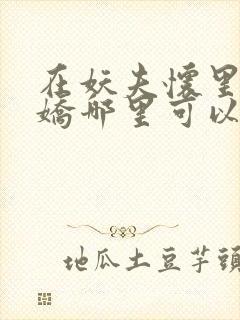 在妖夫怀里
娇那里可以
地瓜土豆芋頭